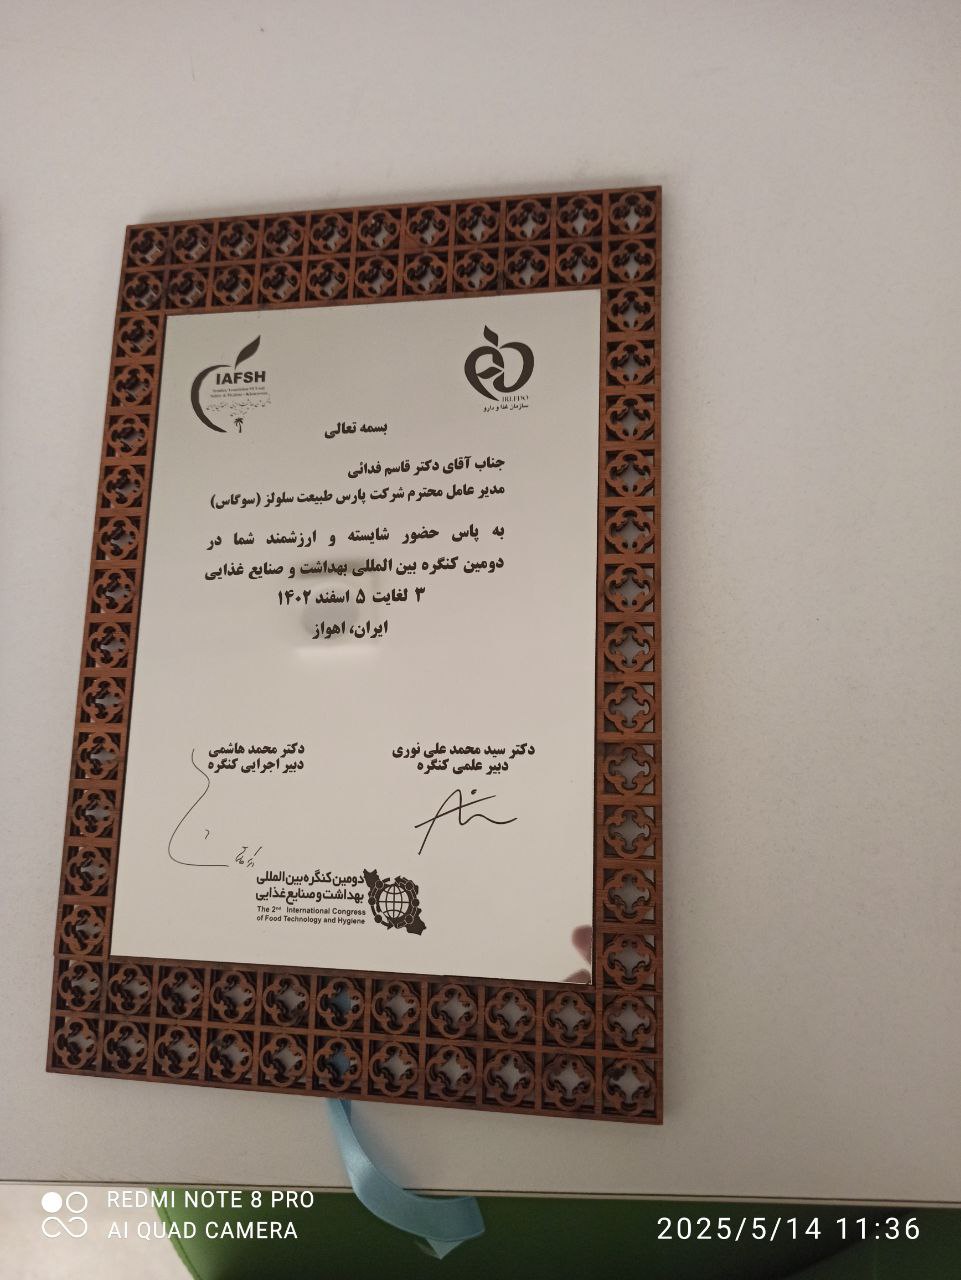 IAFSH
IR.F.DO
سازمان غذا و دارو
بسمه تعالی
جناب آقای دکتر قاسم فدائی
مدیر عامل محترم شرکت پارس طبیعت سلولز (سوگاس)
به پاس حضور شایسته و ارزشمند شما در
دومین کنگره بین المللی بهداشت و صنایع غذایی
۳ لغایت ۵ اسفند ۱۴۰۲
ایران، اهواز
دکتر سید محمد علی نوری
دبیر علمی کنگره
دکتر محمد هاشمی
دبیر اجرایی کنگره
دومین کنگره بین المللی
بهداشت و صنایع غذایی
The 2nd International Congress
of Food Technology and Hygiene
REDMI NOTE 8 PRO
AI QUAD CAMERA
2025/5/14 11:36